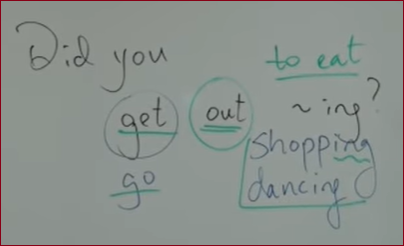 Did you
get out
go
to eat
~ing?
shopping
dancing